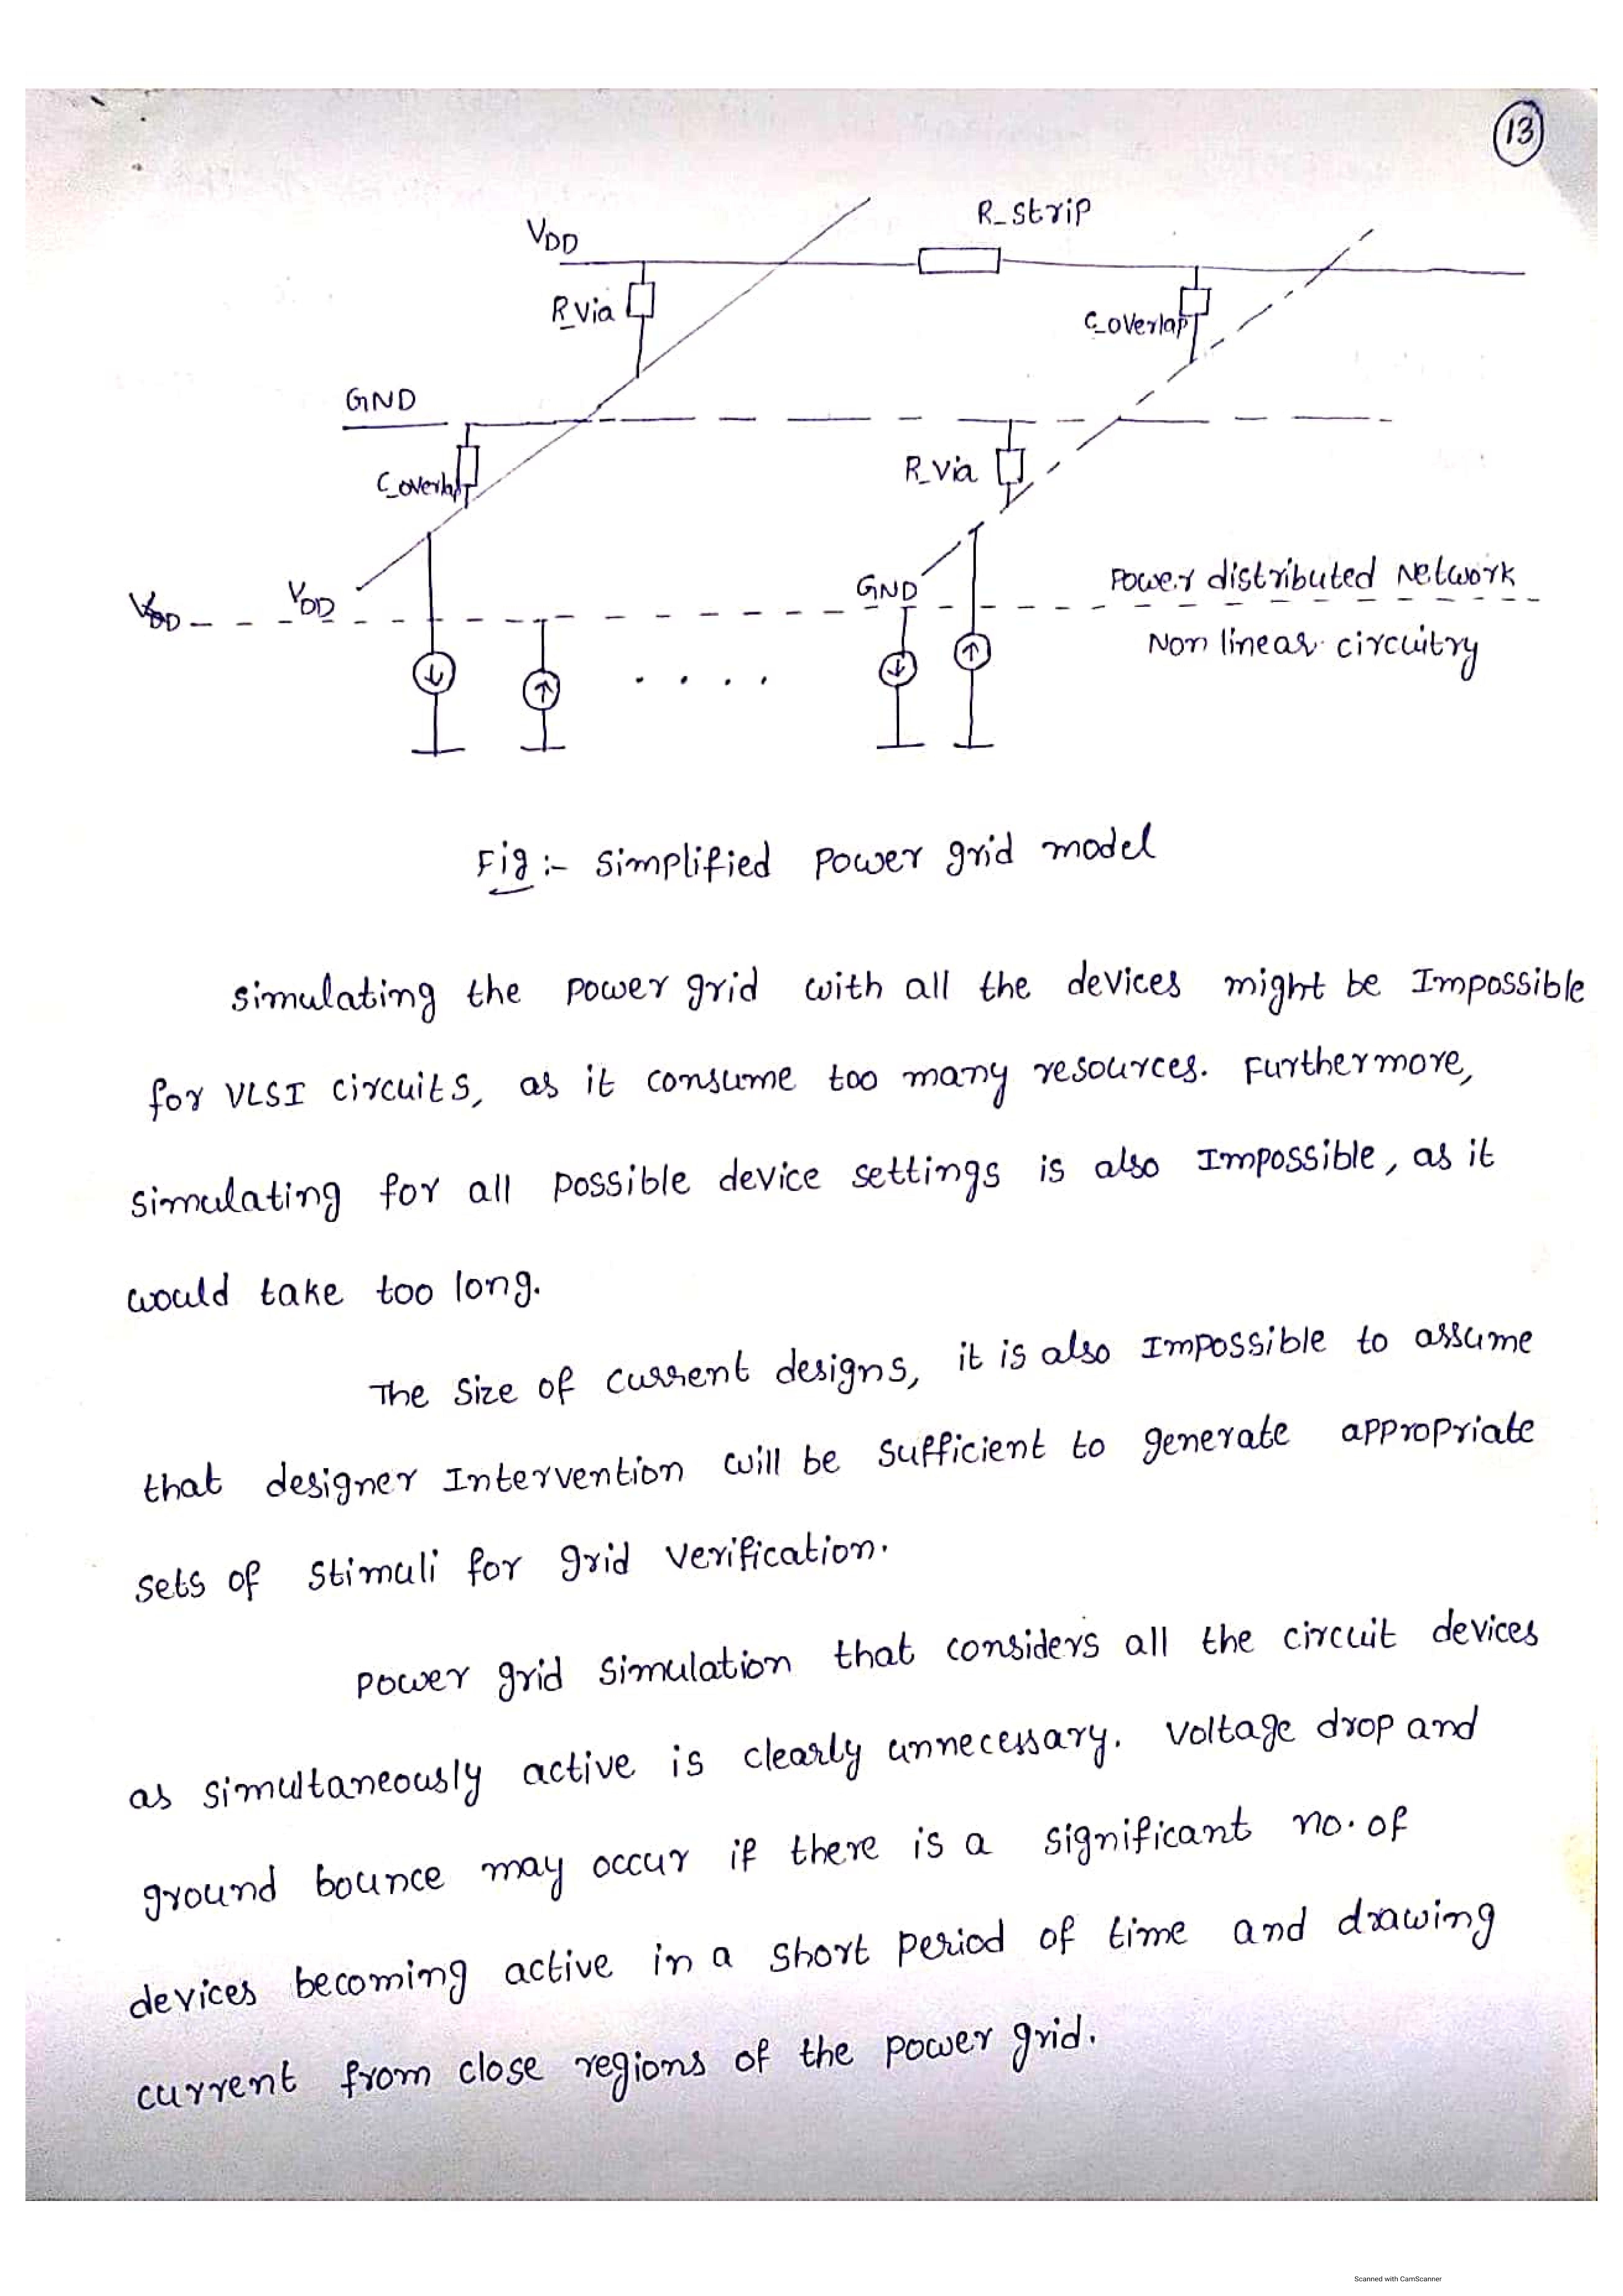 13
V_DD
R_strip
R_via
C_overlap
GND
C_overlap
R_via
V_DD
GND
Power distributed Network
Non linear circuitry
Fig :- Simplified Power grid model
Simulating the power grid with all the devices might be Impossible
for VLSI circuits, as it consume too many resources. Furthermore,
simulating for all possible device settings is also Impossible, as it
would take too long.
The Size of current designs, it is also Impossible to assume
that designer Intervention will be sufficient to generate appropriate
sets of stimuli for grid verification.
Power grid simulation that considers all the circuit devices
as simultaneously active is clearly unnecessary. Voltage drop and
ground bounce may occur if there is a significant no. of
devices becoming active in a short period of time and drawing
current from close regions of the power grid.
Scanned with CamScanner